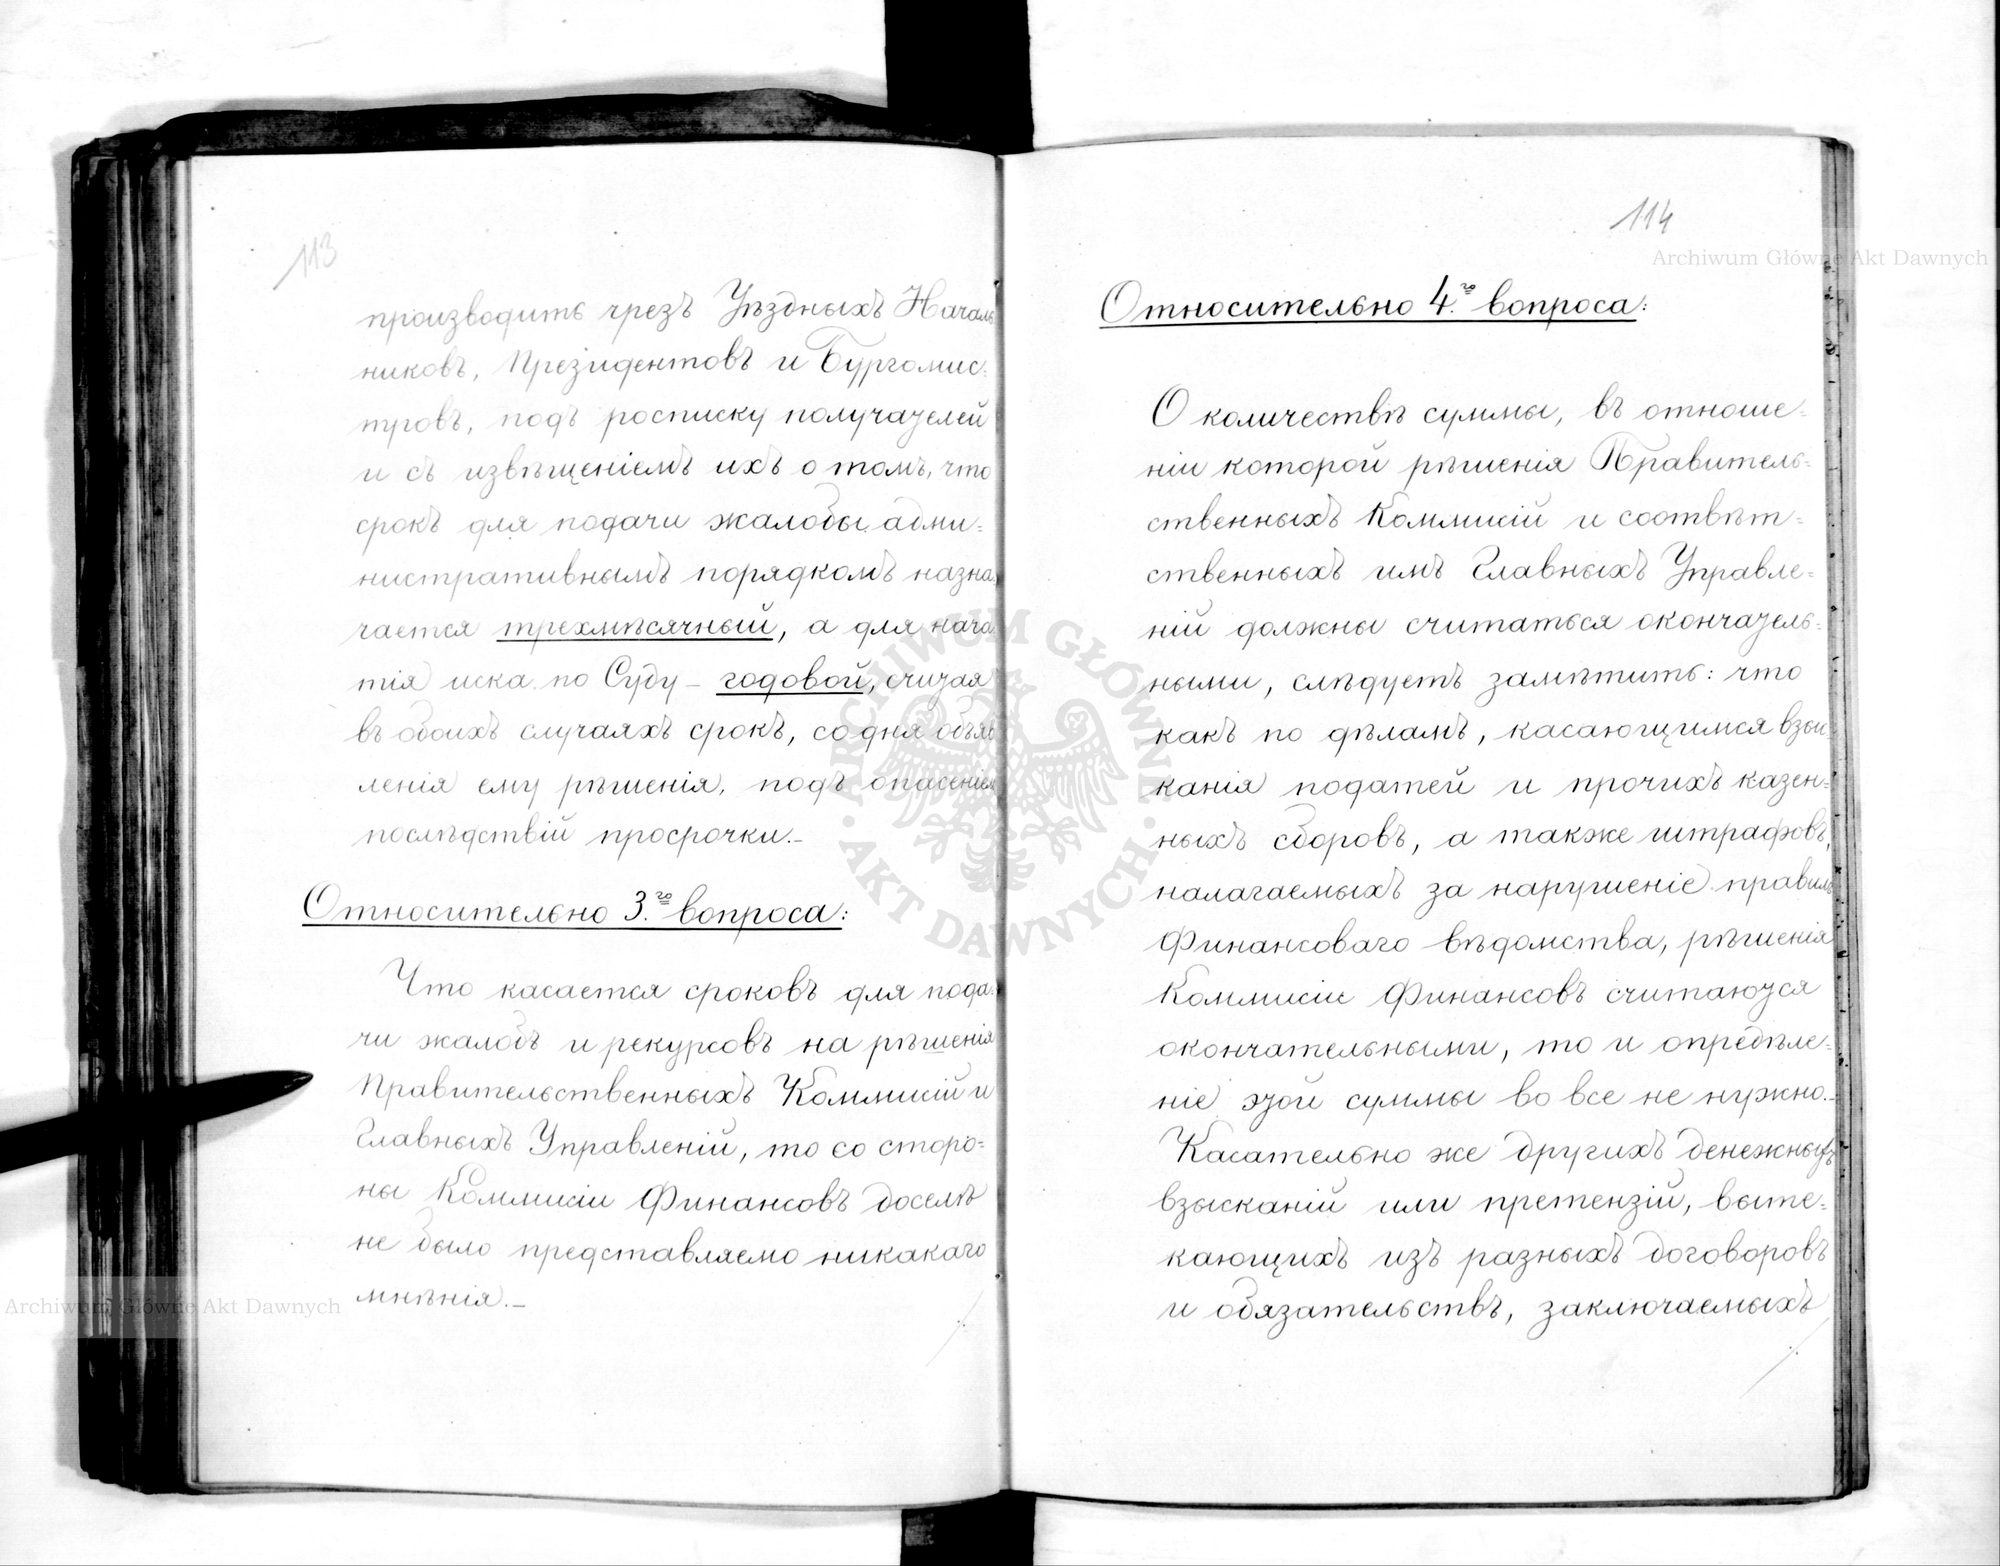 113
производить чрезъ Уѣздныхъ Началь
никовъ, Президентовъ и Бургомис=
тровъ, подъ росписку получателей
и съ извѣщеніемъ ихъ о томъ, что
срокъ для подачи жалобы адми=
нистративнымъ порядкомъ назна=
чается трехмѣсячный, а для нача
тія иска по Суду – годовой, считая
въ обоихъ случаяхъ срокъ, со дня объяв
ленія ему рѣшенія, подъ опасеніем
послѣдствій просрочки.–
Относительно 3.го вопроса:
Что касается сроковъ для пода=
чи жалобъ и рекурсовъ на рѣшенія
Правительственныхъ Коммисій и
Главныхъ Управленій, то со сторо=
ны Коммисіи Финансовъ доселѣ
не было представляемо никакаго
мнѣнія.–
114
Относительно 4.го вопроса:
О количествѣ суммы, въ отноше=
ніи которой рѣшенія Правитель=
ственныхъ Коммисій и соотвѣт=
ственныхъ имъ Главныхъ Управле=
ній должны считаться окончатель=
ными, слѣдуетъ замѣтить: что
какъ по дѣламъ, касающимся взы=
канія податей и прочихъ казен=
ныхъ сборовъ, а также штрафовъ,
налагаемыхъ за нарушеніе правилъ
Финансоваго вѣдомства, рѣшенія
Коммисіи Финансовъ считаются
окончательными, то и опредѣле=
ніе этой суммы во все не нужно.–
Касательно же другихъ денежныхъ
взысканій или претензій, выте=
кающихъ изъ разныхъ договоровъ
и обязательствъ, заключаемыхъ
Archiwum Główne Akt Dawnych
Archiwum Główne Akt Dawnych
ARCHIWUM GŁÓWNE · AKT DAWNYCH ·